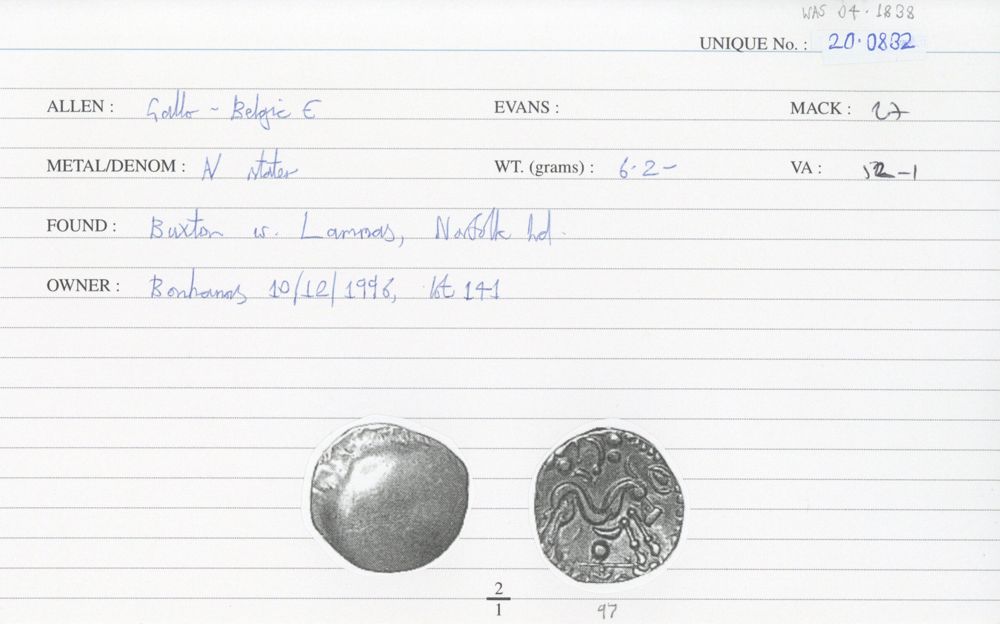 WAS 04.1838
UNIQUE No. : 20.0832
ALLEN : Gallo-Belgic E EVANS : MACK : 27
METAL/DENOM : N stater WT. (grams) : 6.2- VA : 52-1
FOUND : Buxton w. Lammas, Norfolk hd.
OWNER : Bonhams 10/12/1996, lot 141
2
1
97